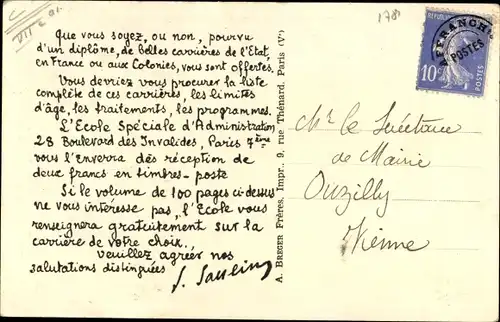 Que vous soyez, ou non, pourvu
d'un diplôme, de belles carrières de l'Etat,
en France ou aux Colonies, vous sont offertes.
Vous devriez vous procurer la liste
complète de ces carrières, les limites
d'âge, les traitements, les programmes.
L'Ecole Spéciale d'Administration
28 Boulevard des Invalides, Paris 7ème
vous l'enverra dès réception de
deux francs en timbres-poste
Si le volume de 100 pages ci-dessus
ne vous intéresse pas, l'Ecole vous
renseignera gratuitement sur la
carrière de votre choix.
Veuillez agréer nos
salutations distinguées
A. BREGER Frères, Impr., 9, rue Thénard, Paris (V°)
1780
REPUBLIQUE FRANÇAISE
AFFRANCHts
POSTES
10c
POSTES
Mr le Secrétaire
de Mairie
Ouzilly
Vienne